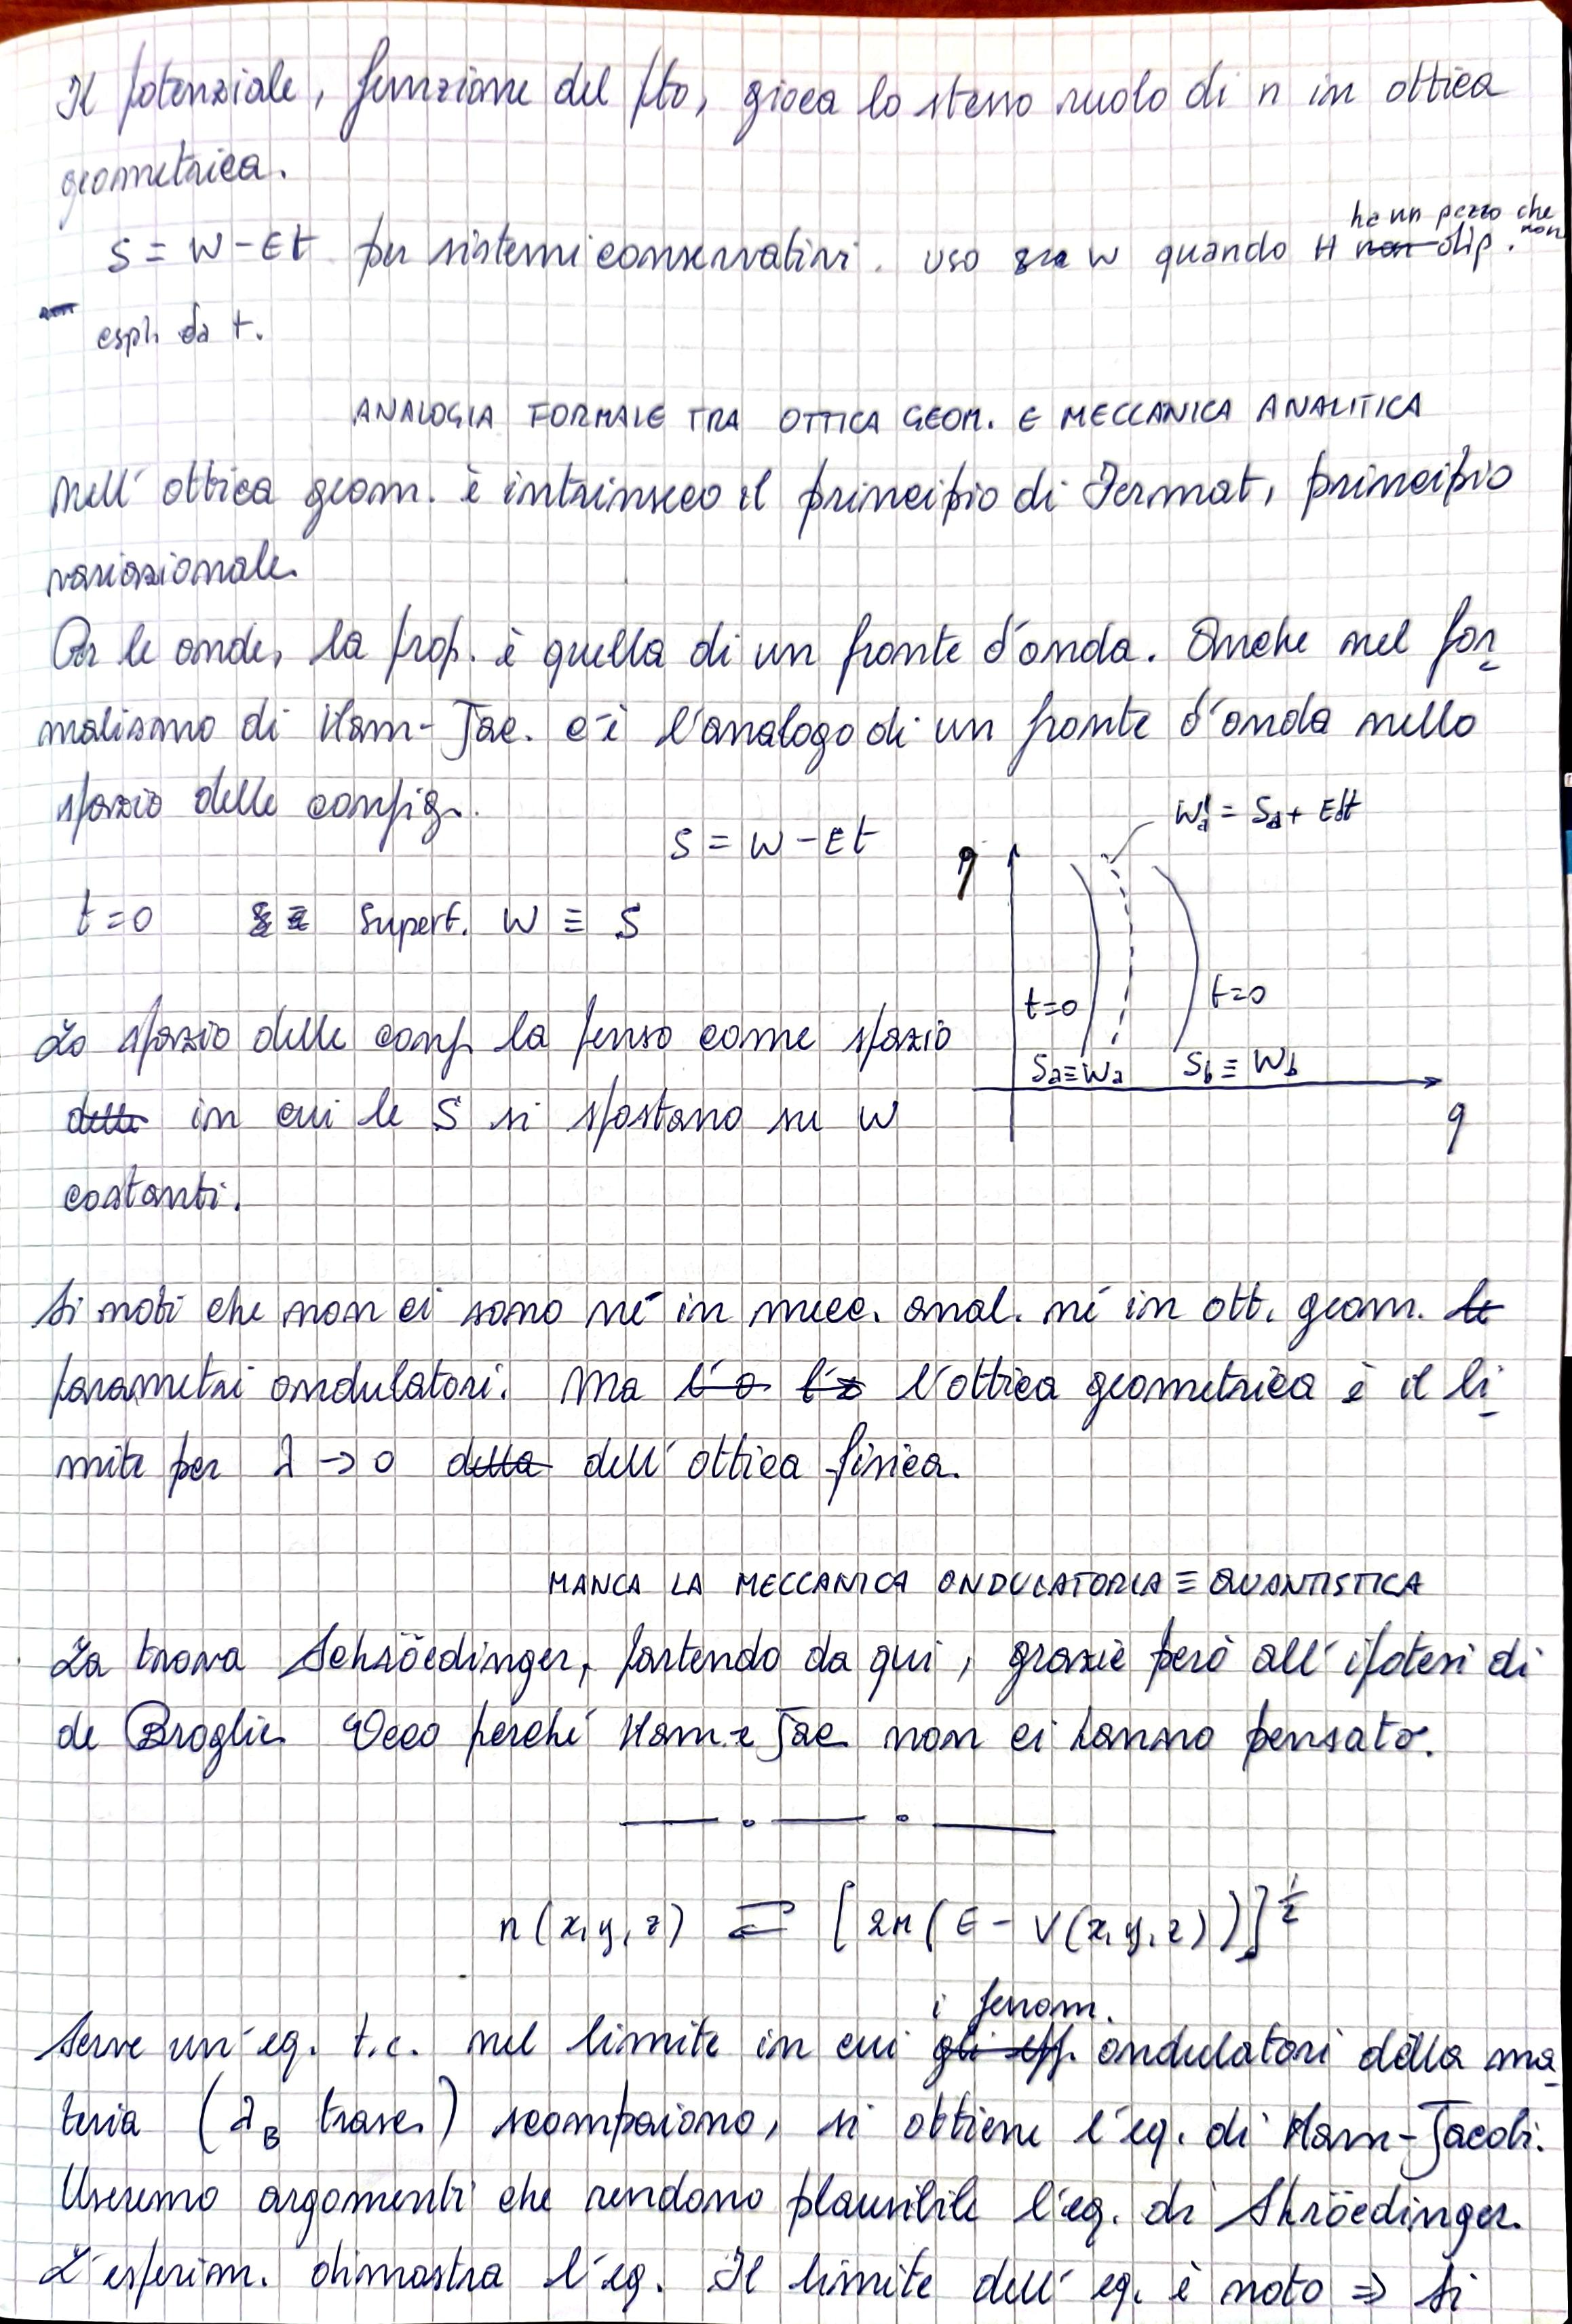 Il potenziale, funzione del pto, gioca lo stesso ruolo di n in ottica
geometrica.
ha un pezzo che
S = W - Et per sistemi conservativi. uso W quando H dip. non
espl. da t.
ANALOGIA FORMALE TRA OTTICA GEOM. E MECCANICA ANALITICA
Nell' ottica geom. è intrinseco il principio di Fermat, principio
variazionale.
Per le onde, la prop. è quella di un fronte d'onda. Anche nel for
malismo di Ham-Jac. c'è l'analogo di un fronte d'onda nello
spazio delle config.
W'a = Sa + Edt
S = W - Et
q
t=0 Superf. W ≡ S
t=0 t=0
Lo spazio delle conf. la penso come spazio
Sa≡Wa Sb≡Wb
in cui le S si spostano su W
q
costanti.
Si noti che non ci sono né in mecc. anal. né in ott. geom.
parametri ondulatori. Ma l'ottica geometrica è il li
mite per λ → 0 dell' ottica fisica.
MANCA LA MECCANICA ONDULATORIA ≡ QUANTISTICA
La trova Schröedinger, partendo da qui, grazie però all' ipotesi di
de Broglie. Ecco perché Ham. e Jac. non ci hanno pensato.
n(x,y,z) ⇄ [2m(E - V(x,y,z))]^½
i fenom.
Serve un' eq. t.c. nel limite in cui ondulatori della ma
teria (λB trasc.) scompaiono, si ottiene l'eq. di Ham-Jacobi.
Useremo argomenti che rendono plausibile l'eq. di Shröedinger.
L'esperim. dimostra l'eq. Il limite dell' eq. è noto ⇒ si